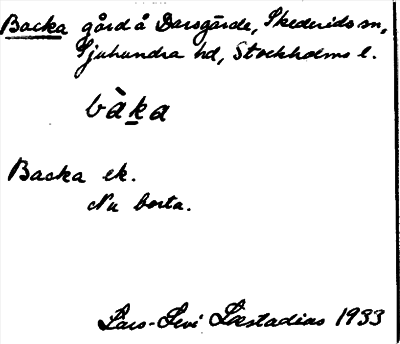 Backa gård å Darsgärde, Skederids sn,
Sjuhundra hd, Stockholms l.
bàka
Backa ek.
Nu borta.
Lars-Levi Læstadius 1933